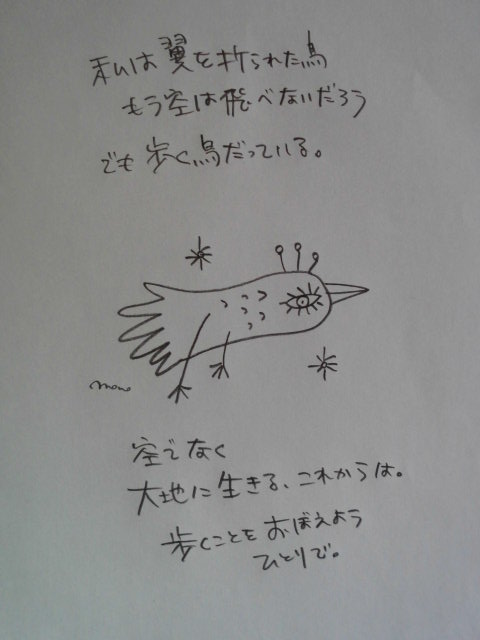 私は翼を折られた鳥
もう空は飛べないだろう
でも歩く鳥だっている。
mono
空でなく
大地に生きる、これからは。
歩くことをおぼえよう
ひとりで。